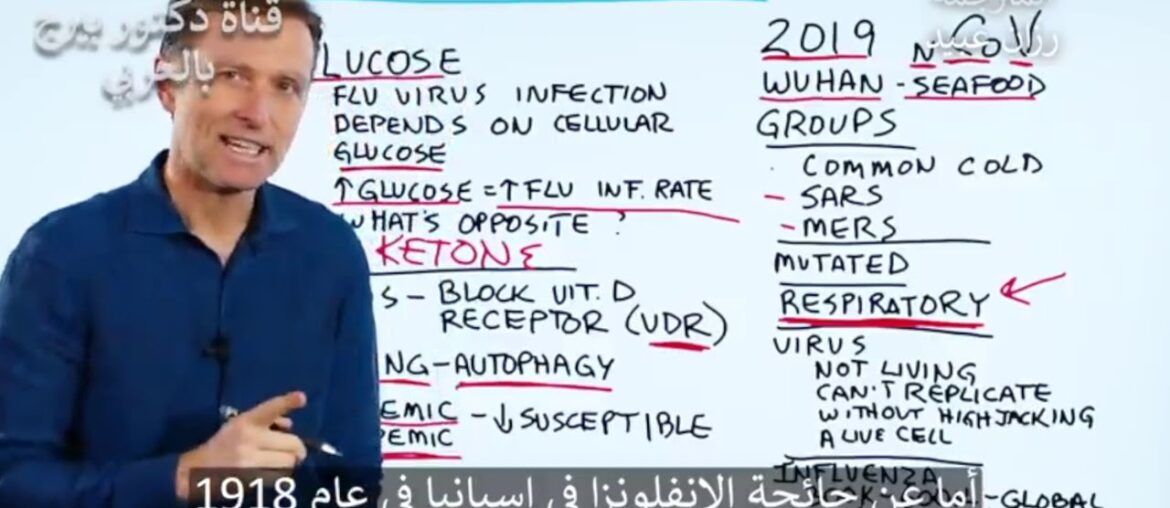 قناة دكتور بيرج
بالعربي
LUCOSE
FLU VIRUS INFECTION
DEPENDS ON CELLULAR
GLUCOSE
↑GLUCOSE = ↑FLU INF. RATE
WHAT'S OPPOSITE ?
KETONE
S - BLOCK VIT. D
RECEPTOR (VDR)
NG - AUTOPHAGY
EMIC - ↓ SUSCEPTIBLE
EMIC
رزان عبيد
2019 nCoV
WUHAN - SEAFOOD
GROUPS
· COMMON COLD
- SARS
- MERS
MUTATED
RESPIRATORY
VIRUS
NOT LIVING
CAN'T REPLICATE
WITHOUT HIGHJACKING
A LIVE CELL
INFLUENZA
- GLOBAL
أما عن جائحة الإنفلونزا في إسبانيا في عام 1918